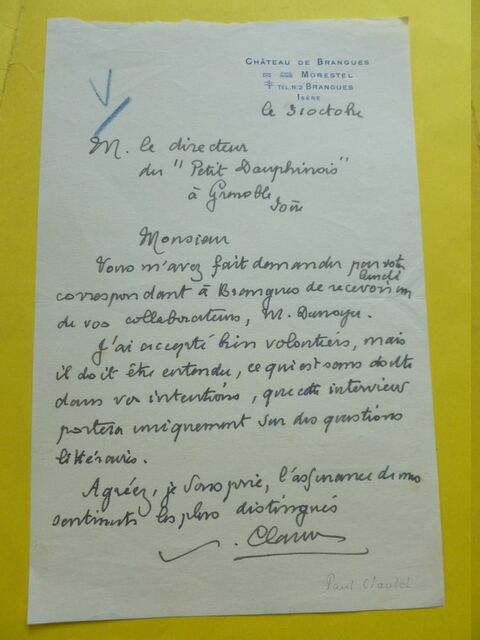 CHÂTEAU DE BRANGUES
MORESTEL
TÉL. N.2 BRANGUES
ISÈRE
le 31 octobre
M. le directeur
du "Petit Dauphinois"
à Grenoble
Isère
Monsieur
Vous m'avez fait demander par votre
correspondant à Brangues de recevoir lundi un
de vos collaborateurs, M.
J'ai accepté bien volontiers, mais
il doit être entendu, ce qui est sans doute
dans vos intentions, que cette interview
portera uniquement sur des questions
littéraires.
Agréez, je vous prie, l'assurance de mes
sentiments les plus distingués
Claudel
Paul Claudel